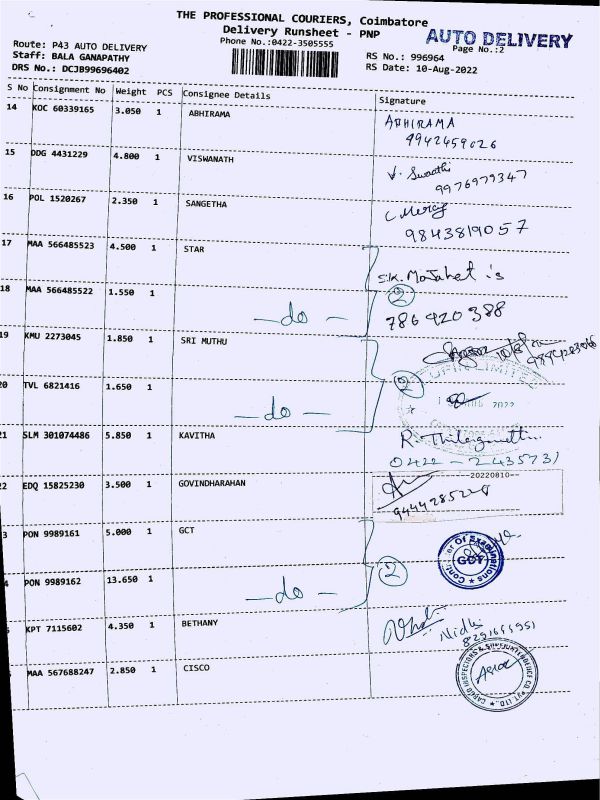 THE PROFESSIONAL COURIERS, Coimbatore
Delivery Runsheet - PNP
Phone No.:0422-3505555
AUTO DELIVERY
Page No.:2
Route: P43 AUTO DELIVERY
Staff: BALA GANAPATHY
DRS No.: DCJB99696402
RS No.: 996964
RS Date: 10-Aug-2022
S No Consignment No Weight PCS Consignee Details Signature
14 KOC 60339165 3.050 1 ABHIRAMA ABHIRAMA
9942459026
15 DDG 4431229 4.800 1 VISWANATH V. Swathi
9976979347
16 POL 1520267 2.350 1 SANGETHA
9843819057
17 MAA 566485523 4.500 1 STAR S.K.
18 MAA 566485522 1.550 1 — do — 2
786920388
19 KMU 2273045 1.850 1 SRI MUTHU
20 TVL 6821416 1.650 1 — do — 2
2022
21 SLM 301074486 5.850 1 KAVITHA R.
0422 - 2435731
22 EDQ 15825230 3.500 1 GOVINDHARAHAN 20220810
3 PON 9989161 5.000 1 GCT
Controller Of Examinations
GCT
4 PON 9989162 13.650 1 — do — 2
KPT 7115602 4.350 1 BETHANY Nidhi
MAA 567688247 2.850 1 CISCO